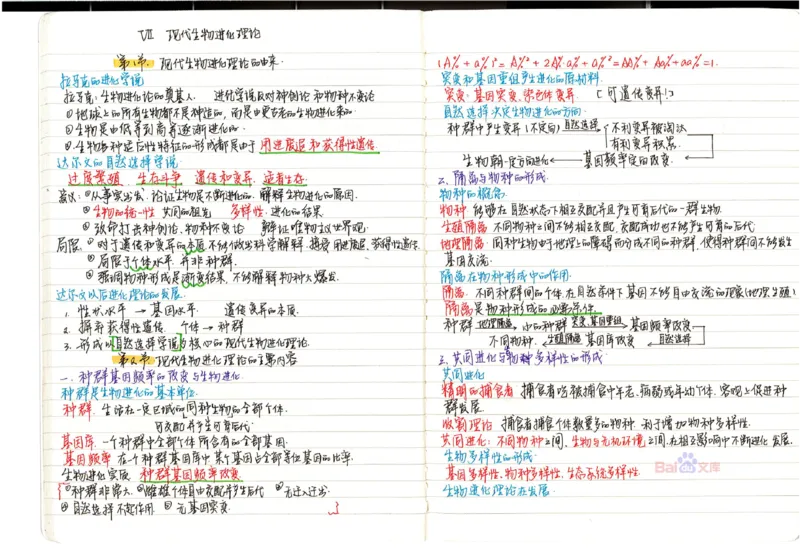 VII 现代生物进化理论
第1节 现代生物进化理论的由来
拉马克的进化学说
拉马克:生物进化论的奠基人 进化学说反对神创论和物种不变论
①地球上的所有生物都不是神造的,而是由更古老的生物进化来的
②生物是由低等到高等逐渐进化的
③生物各种适应性特征的形成都是由于用进废退和获得性遗传
达尔文的自然选择学说
过度繁殖 生存斗争 遗传和变异 适者生存
意义:①从事实出发,论证生物是不断进化的,解释生物进化的原因
②生物的统一性 共同的祖先 多样性:进化的结果
③致命打击神创论、物种不变论 辩证唯物主义世界观
局限:①对于遗传和变异的本质不能做出科学解释,接受用进废退,获得性遗传
②局限于个体水平,并非种群
③强调物种形成是渐变结果,不能解释物种大爆发
达尔文以后进化理论的发展
1. 性状水平→基因水平 遗传变异的本质
2. 摒弃获得性遗传 个体→种群
3. 形成以自然选择学说为核心的现代生物进化理论
第2节 现代生物进化理论的主要内容
一、种群基因频率的改变与生物进化
种群是生物进化的基本单位
种群 生活在一定区域的同种生物的全部个体
可交配并产生可育后代
基因库 一个种群中全部个体所含有的全部基因
基因频率 在一个种群基因库中某个基因占全部等位基因的比率
生物进化实质 种群基因频率改变
①种群非常大 ②雌雄个体自由交配并产生后代 ③无迁入迁出
④自然选择不起作用 ⑤无基因突变
(A%+a%)²=A%²+2A%a%+a%²=AA%+Aa%+aa%=1
突变和基因重组产生进化的原材料
突变:基因突变、染色体变异 (可遗传变异!)
自然选择决定生物进化的方向
种群中产生变异(不定向) 自然选择 不利变异被淘汰
有利变异积累
生物朝一定方向进化←基因频率定向改变
二、隔离与物种的形成
物种的概念
物种 能够在自然状态下相互交配并且产生可育后代的一群生物
生殖隔离 不同物种之间不能相互交配,交配成功也不能够产生可育的后代
地理隔离 同种生物由于地理上的障碍而分成不同的种群,使得种群间不能发生
基因交流
隔离在物种形成中的作用
隔离 不同种群间的个体,在自然条件下基因不能自由交流的现象(地理,生殖)
隔离是物种形成的必要条件
种群 地理隔离→小的种群 突变、基因重组→基因频率改变
不同物种←生殖隔离 基因库改变←自然选择
三、共同进化与生物多样性的形成
共同进化
精明的捕食者 捕食者吃被捕食中年老、病弱或年幼个体,客观上促进种
群发展
收割理论 捕食者捕食个体数量多的物种,利于增加物种多样性
共同进化:不同物种之间,生物与无机环境之间,在相互影响中不断进化、发展
生物多样性的形成
基因多样性,物种多样性,生态系统多样性
生物进化理论在发展
Baidu文库